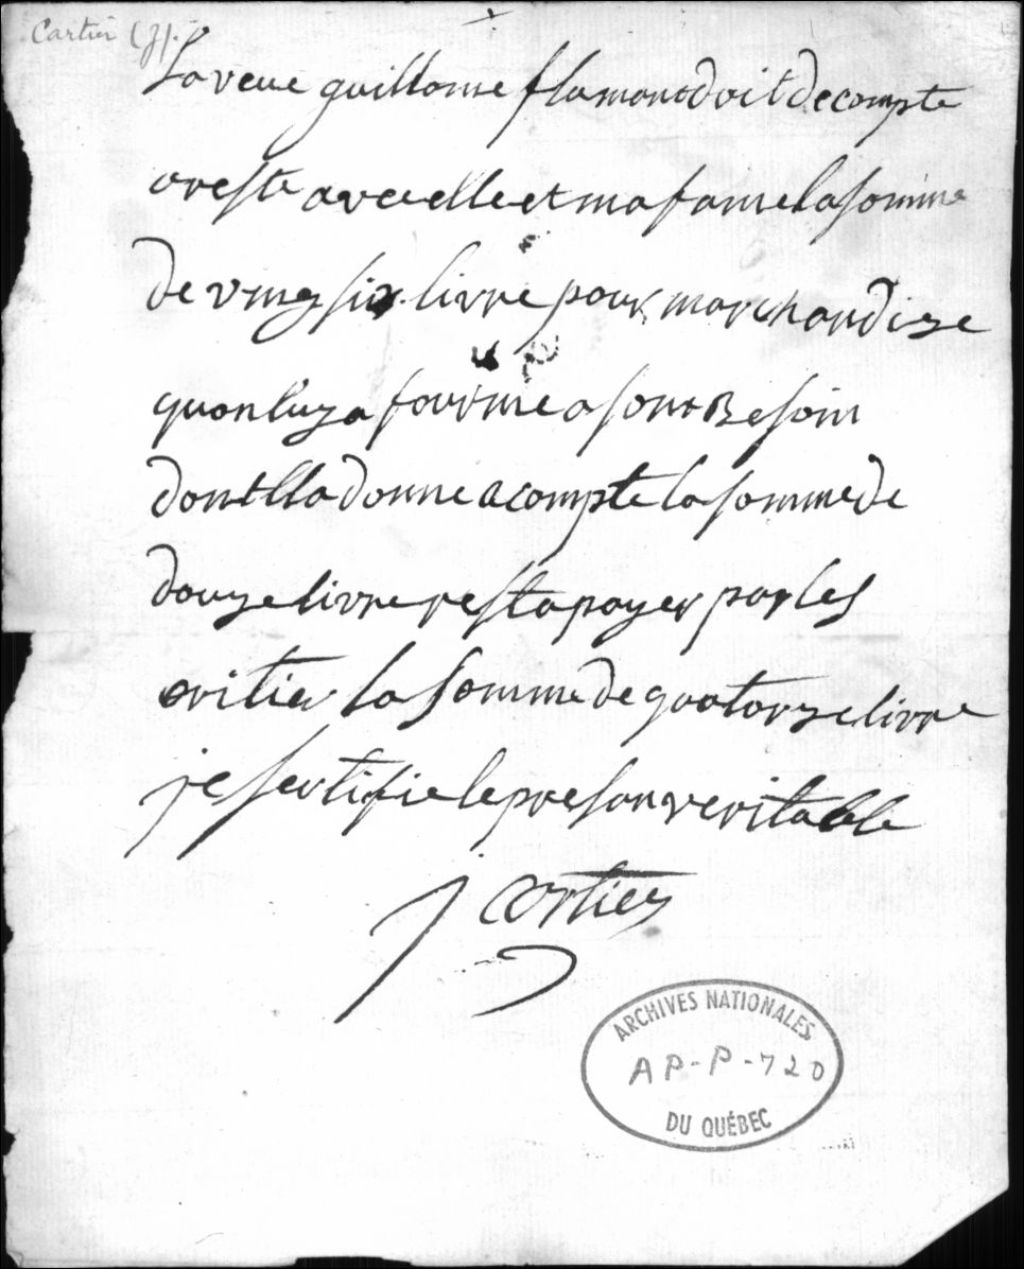 Cartier (J).
La veuve guillome flamand doit de compte
areste avec elle et ma fame la somme
de vingsix livre pour marchandize
quon luy a fournie a sont Besoin
dont lla donne acompte la somme de
douze livre rest a payer par les
oritier la somme de quatorze livre
je sertifie le presan veritable
j cartier
ARCHIVES NATIONALES
AP-P-720
DU QUÉBEC